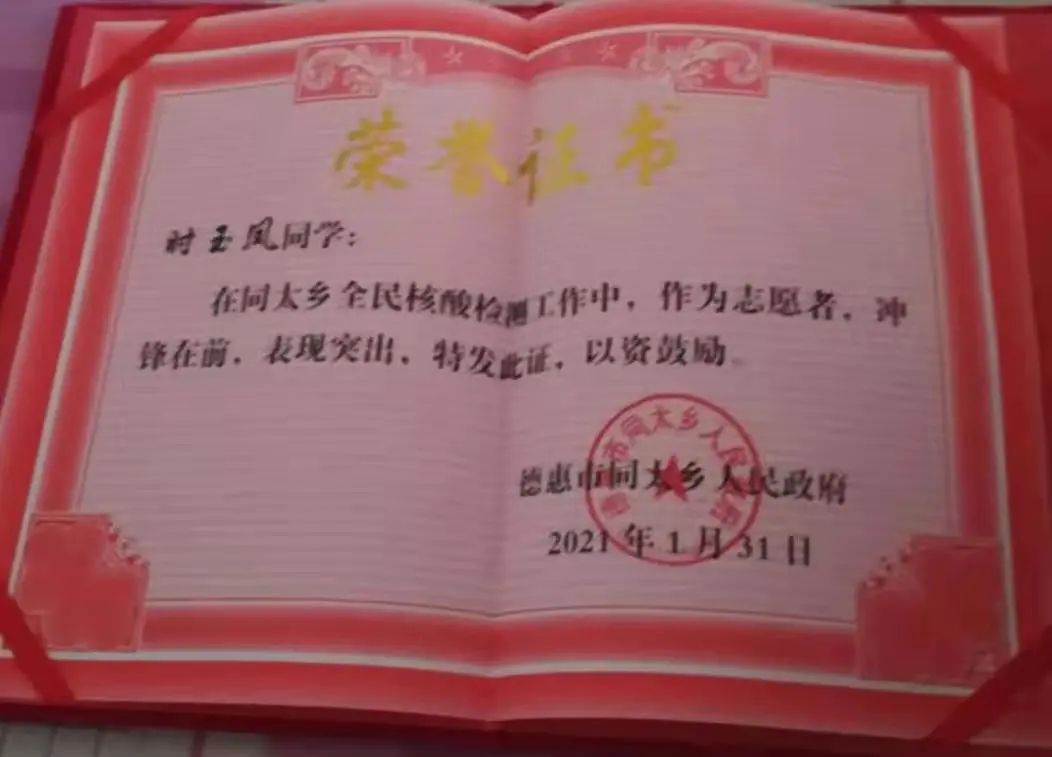 荣誉证书
时玉凤同学：
在同太乡全民核酸检测工作中，作为志愿者，冲
锋在前，表现突出，特发此证，以资鼓励。
德惠市同太乡人民政府
2021年1月31日